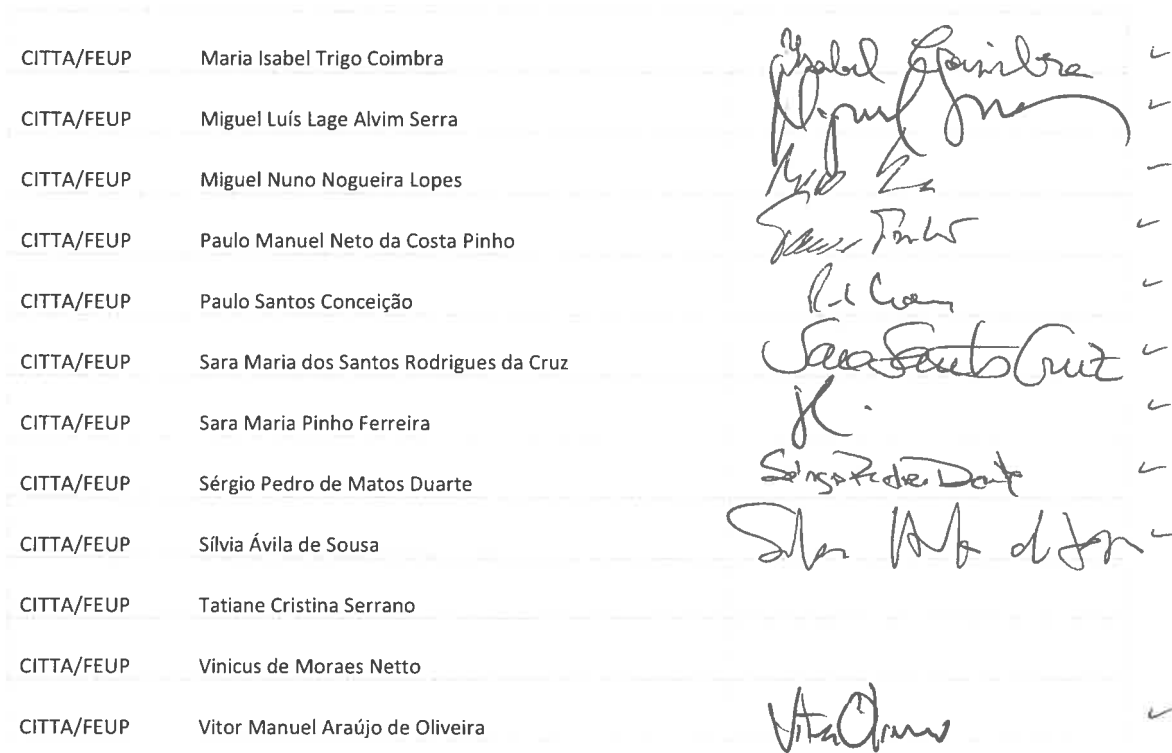 CITTA/FEUP Maria Isabel Trigo Coimbra Isabel Coimbra
CITTA/FEUP Miguel Luís Lage Alvim Serra Miguel
CITTA/FEUP Miguel Nuno Nogueira Lopes
CITTA/FEUP Paulo Manuel Neto da Costa Pinho Pinho
CITTA/FEUP Paulo Santos Conceição
CITTA/FEUP Sara Maria dos Santos Rodrigues da Cruz Sara Santos Cruz
CITTA/FEUP Sara Maria Pinho Ferreira
CITTA/FEUP Sérgio Pedro de Matos Duarte Sérgio Pedro Duarte
CITTA/FEUP Sílvia Ávila de Sousa
CITTA/FEUP Tatiane Cristina Serrano
CITTA/FEUP Vinicus de Moraes Netto
CITTA/FEUP Vitor Manuel Araújo de Oliveira Vitor Oliveira